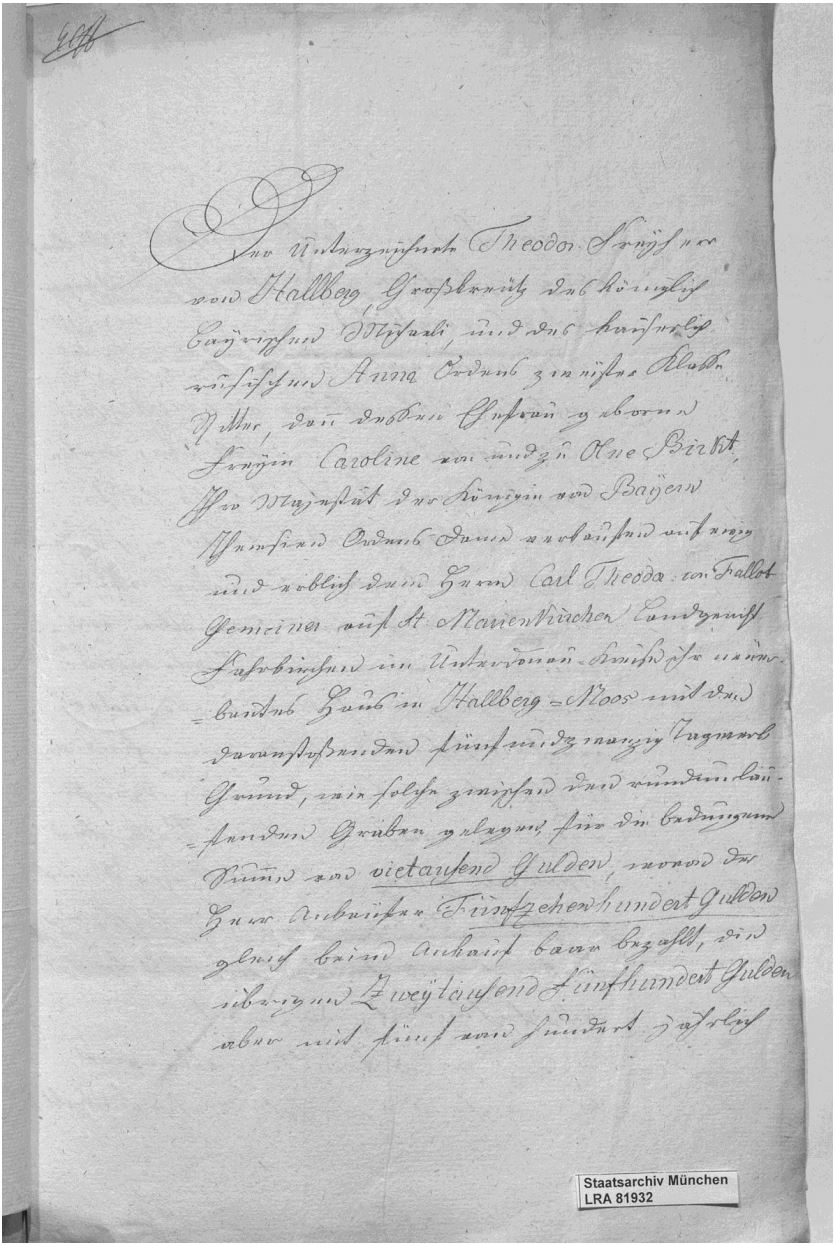 Der Unterzeichnete Theodor Freyherr
von Hallberg, Großkreutz des königlich
bayrischen Michaeli, und des kaiserlich
rusischen Anna Ordens zweiter Klasse
Ritter, dann dessen Ehefrau geborne
Freyin Caroline von und zu Olne Birkt,
Ihro Majestät der Königin von Bayern
Theresien Ordens Dame verkauften auf ewig
und erblich dem Herrn Carl Theodor von Fallot
Gemeiner auf St. Marienkirchen Landgericht
Pfarrkirchen im Unterdonau-Kreise ihr neuer-
=bautes Haus in Hallberg=Moos mit den
daranstoßenden fünf und zwanzig Tagwerk
Grund, wie solche zwischen den rundumlau-
=fenden Gräben gelegen, für die bedungene
Summe von viertausend Gulden, wovon der
Herr Ankäufer Fünfzehenhundert Gulden
gleich beim Ankauf baar bezahlt, die
übrigen Zweytausend Fünfhundert Gulden
aber mit fünf von hundert jährlich
Staatsarchiv München
LRA 81932